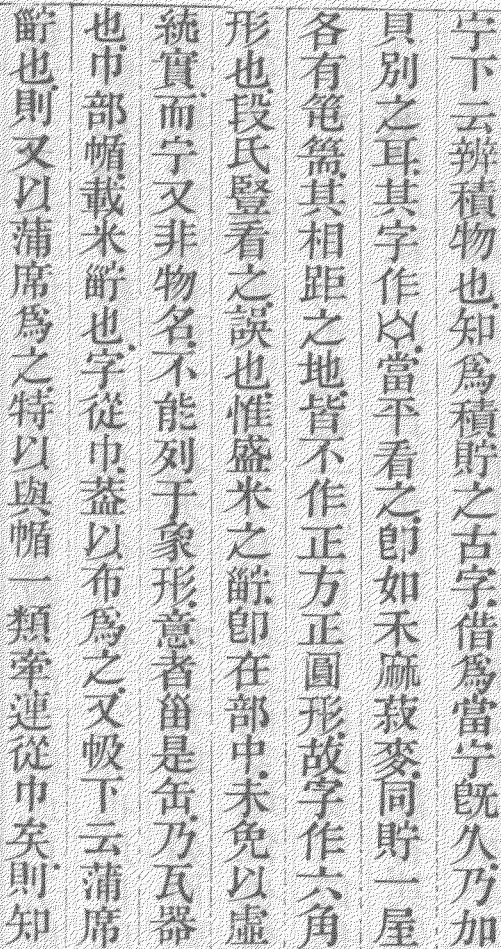 宁下云辨積物也知爲積貯之古字借爲當宁旣久乃加
貝別之耳其字作當平看之卽如禾麻菽麥同貯一屋
各有篅其相距之地皆不作正方正圓形故字作六角
形也段氏豎看之誤也惟盛米之㽈卽在部中未免以虛
統實而宁又非物名不能列于象形意者甾是缶乃瓦器
也巾部㡒載米㽈也字從巾葢以布爲之又㠷下云蒲席
㽈也則又以蒲席爲之特以與㡒一類牽連從巾矣則知